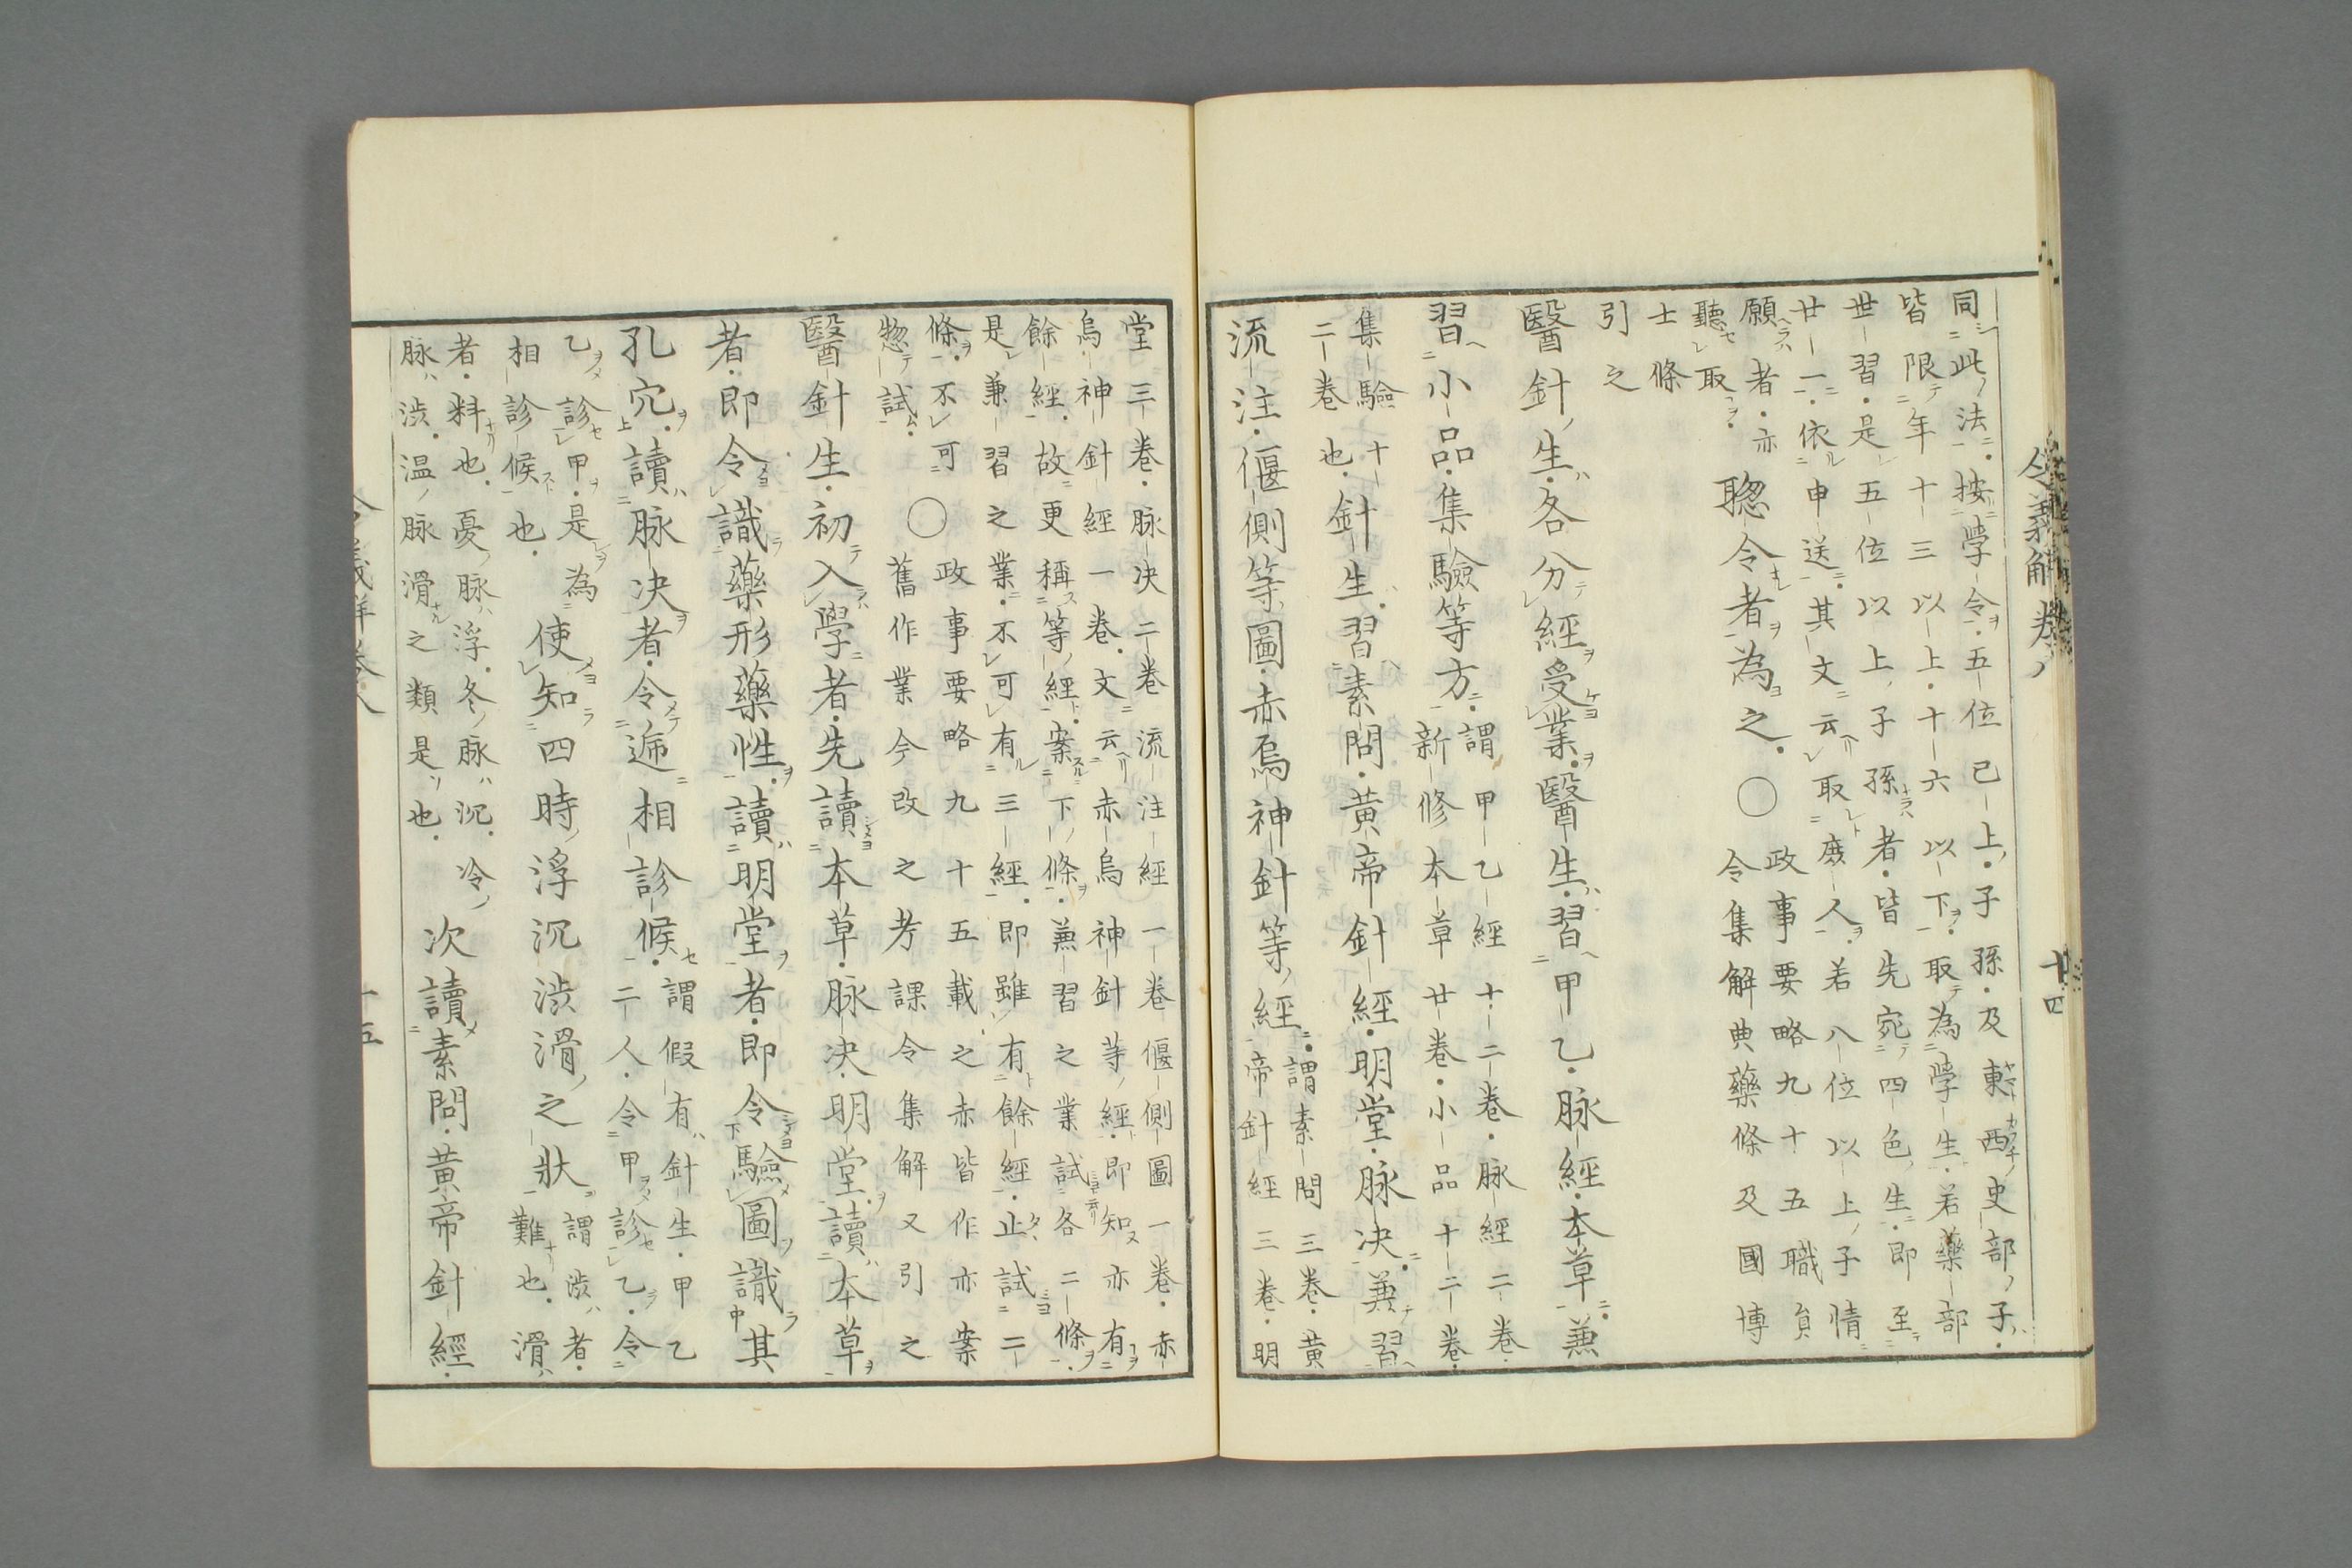 同此法按學令五位已上子孫及東西史部子
皆限年十三以上十六以下取為學生若藥部
世習是五位以上子孫者皆先宛四色生即至
廿一依申送其文云取庶人若八位以上子情
願者亦
聽取
聡令者為之
○
政事要略九十五職員
令集解典藥條及國博
士條
引之
醫針生各分經受業醫生習甲乙脉經本草兼
習小品集驗等方
謂甲乙經十二卷脉經二卷
新修本草廿卷小品十二卷
集驗十
二卷也
針生習素問黄帝針經明堂脉决兼習
流注偃側等圖赤烏神針等經
謂素問三卷黄
帝針經三卷明
令義解卷八
十四
堂三卷脉决二卷流注經一卷偃側圖一卷赤
烏神針經一卷文云赤烏神針等經即知亦有
餘經故更稱等經案下條兼習之業試各二條
是兼習之業不可有三經即雖有餘經止試二
條不可
惣試
○
政事要略九十五載之赤皆作亦案
舊作業今改之考課令集解又引之
醫針生初入學者先讀本草脉决明堂讀本草
者即令識藥形藥性讀明堂者即令驗圖識其
孔穴讀脉决者令遞相診候
謂假有針生甲乙
二人令甲診乙令
乙診甲是為
相診候也
使知四時浮沉渋滑之狀
謂渋者
難也滑
者料也憂脉浮冬脉沉冷
脉渋温脉滑之類是也
次讀素問黄帝針經